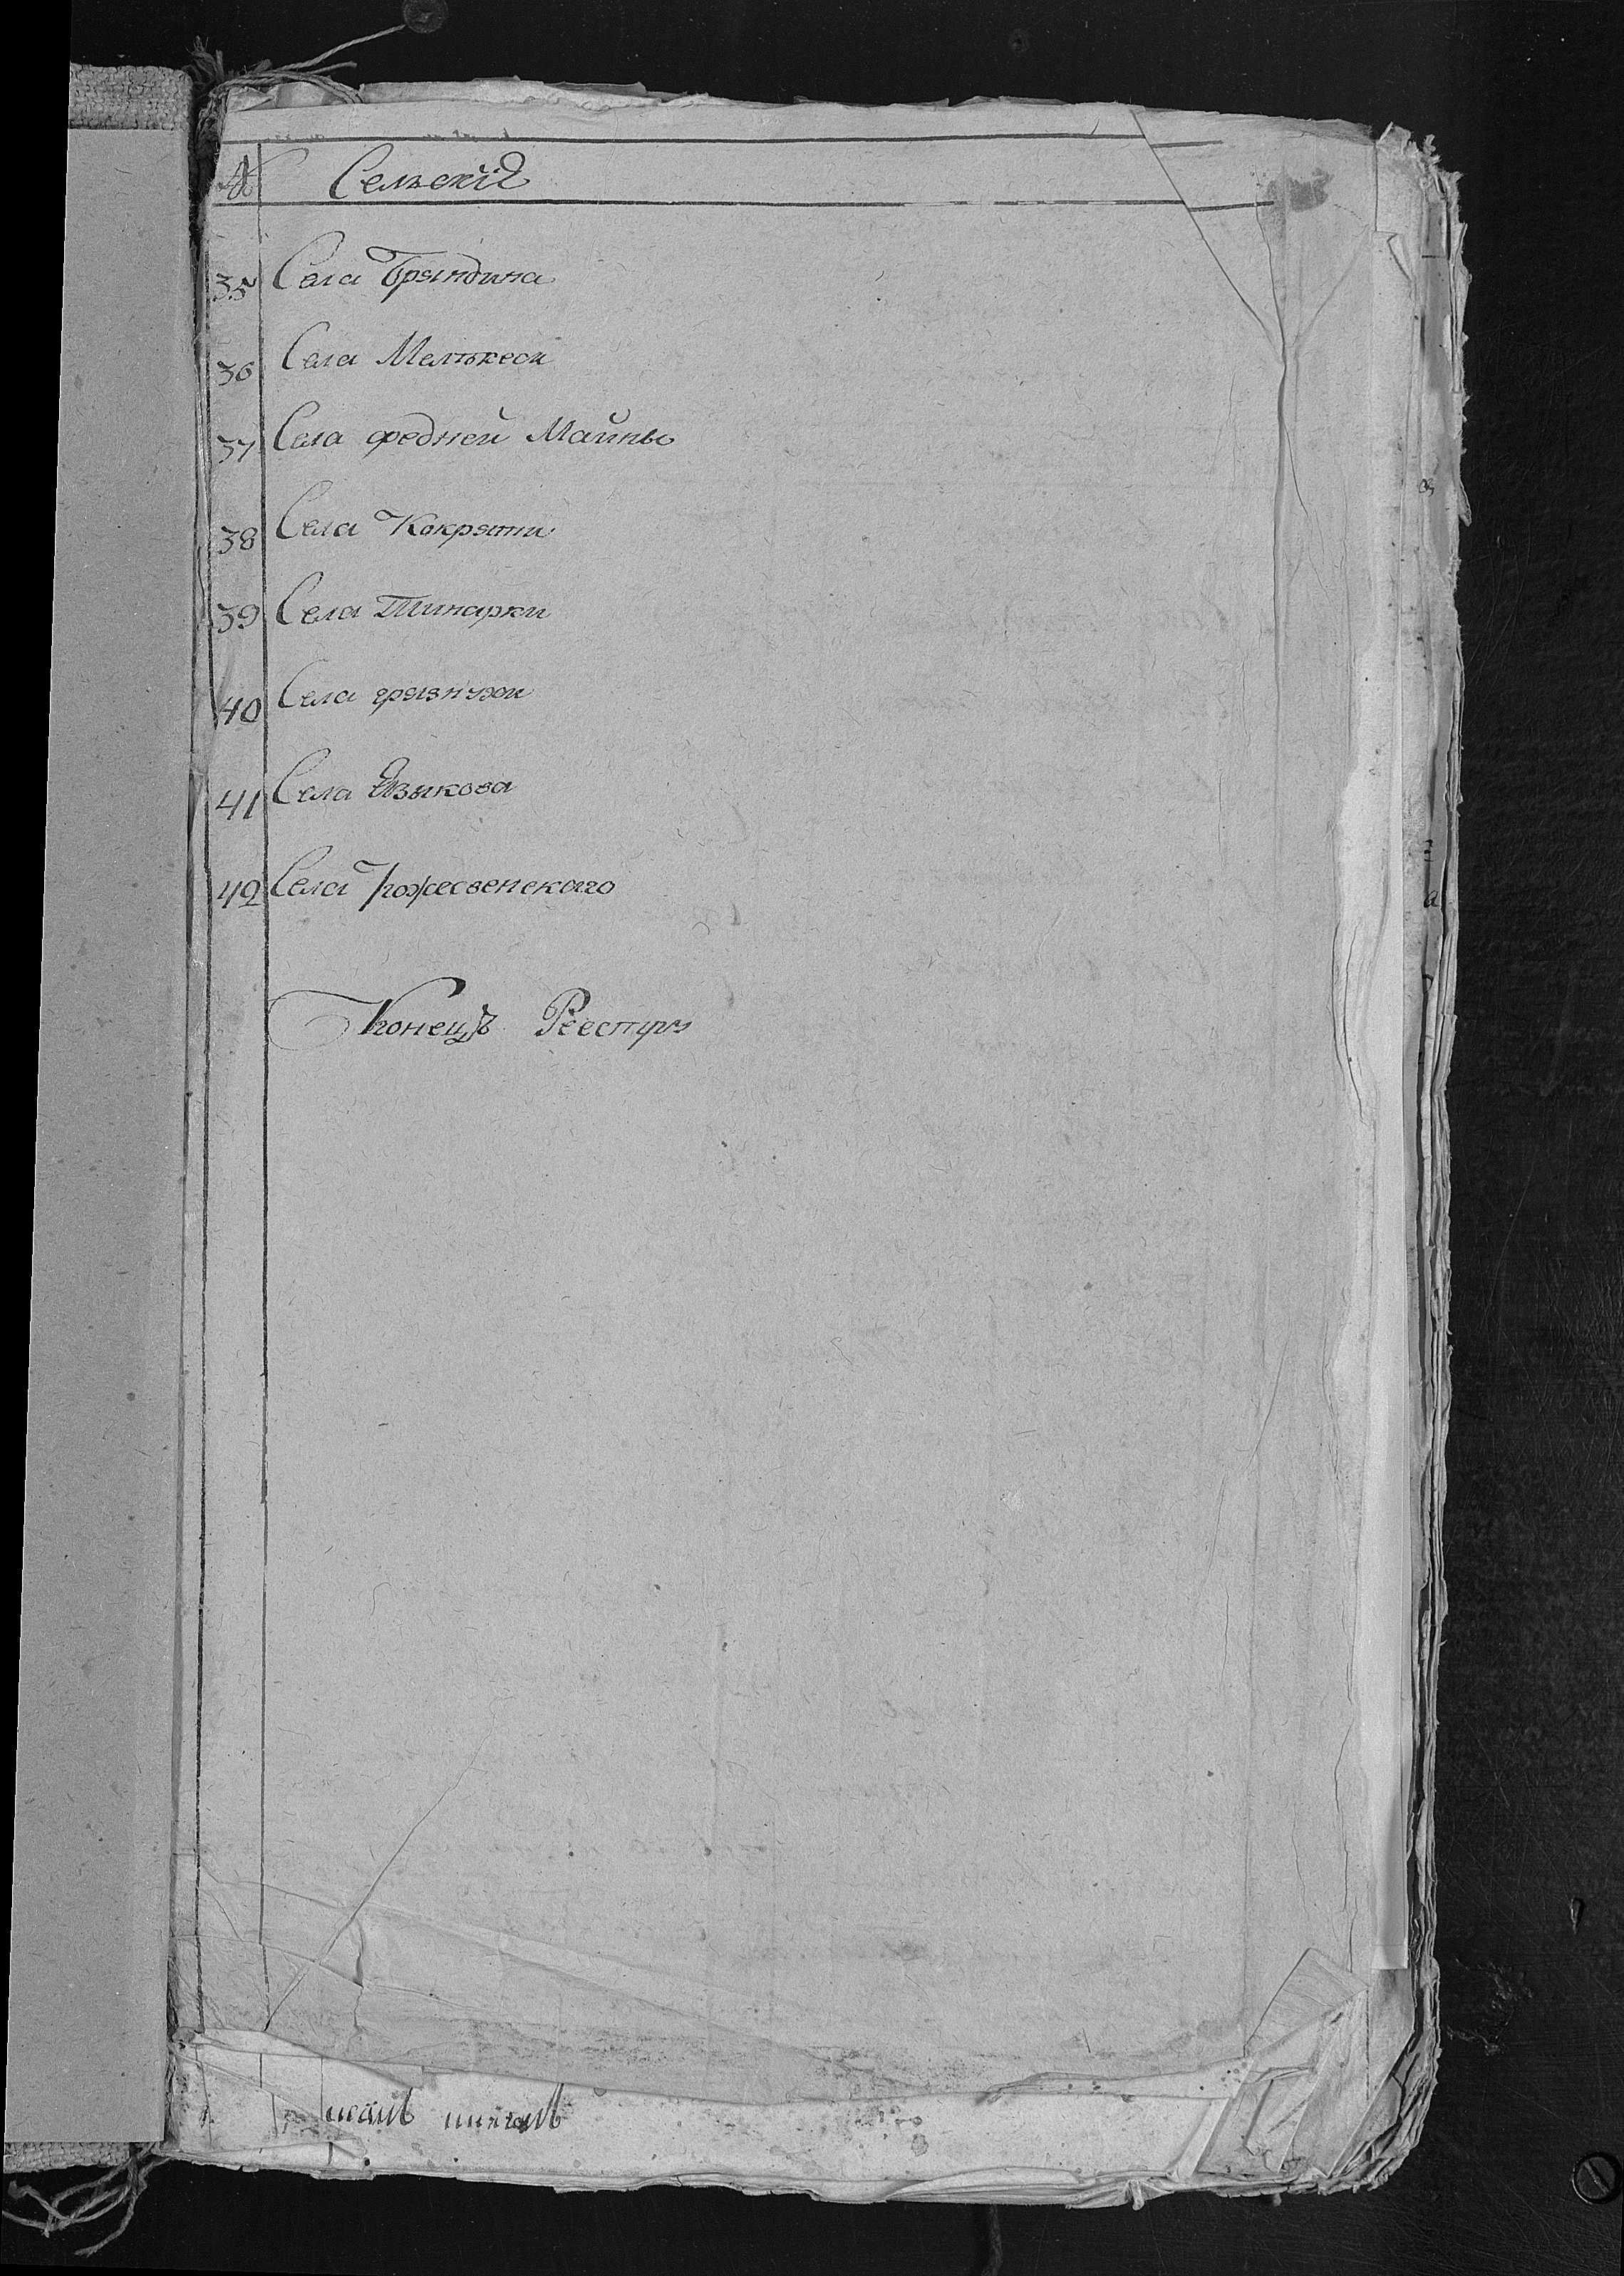 № Селъскiя
35 Села Бряндина
36 Села Мелекеси
37 Села средней Майны
38 Села Кокряти
39 Села Тинарки
40 Села грязнухи
41 Села Языкова
42 Села Рожесвенскаго
Конецъ Реестру